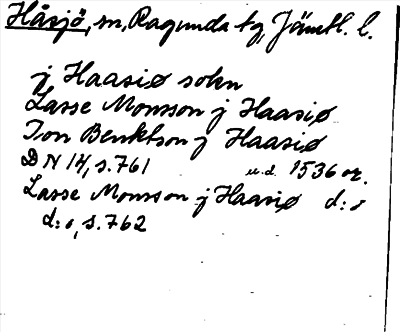 Håsjö, sn, Ragunda tg, Jämtl. l.
j Haasiø sokn
Lasse Monsson j Haasiø
Jon Benktson j Haasiø
D N 14, s. 761 u.d. 1536 or.
Lasse Monsson j Haasiø d:o
d:o, s. 762